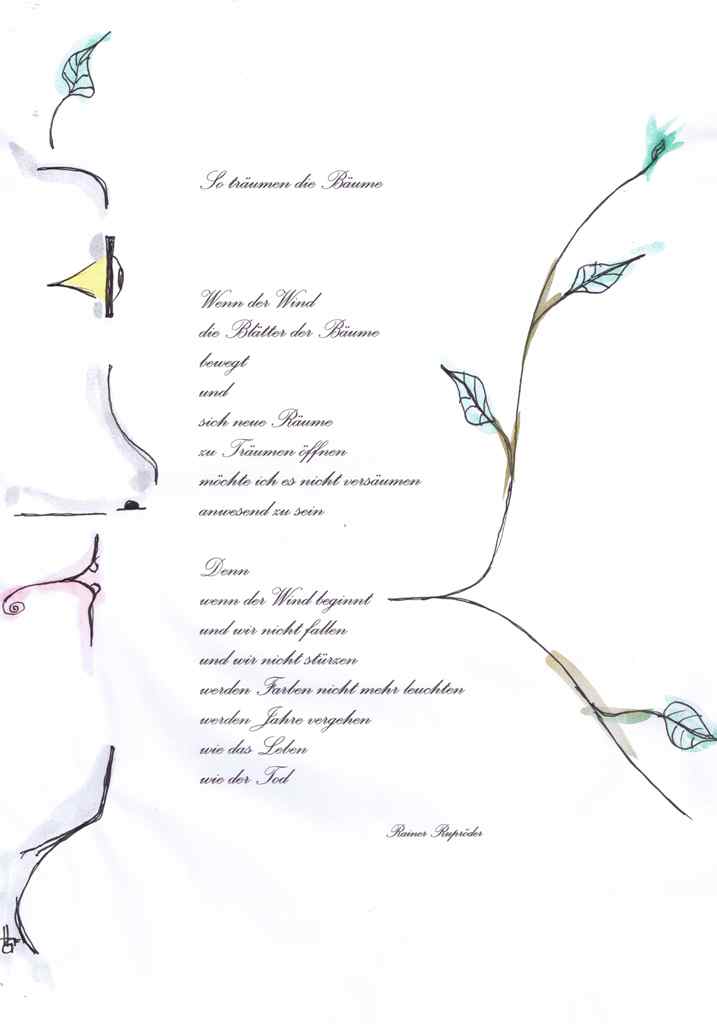 So träumen die Bäume
Wenn der Wind
die Blätter der Bäume
bewegt
und
sich neue Räume
zu Träumen öffnen
möchte ich es nicht versäumen
anwesend zu sein
Denn
wenn der Wind beginnt
und wir nicht fallen
und wir nicht stürzen
werden Farben nicht mehr leuchten
werden Jahre vergehen
wie das Leben
wie der Tod
Rainer Rupröder